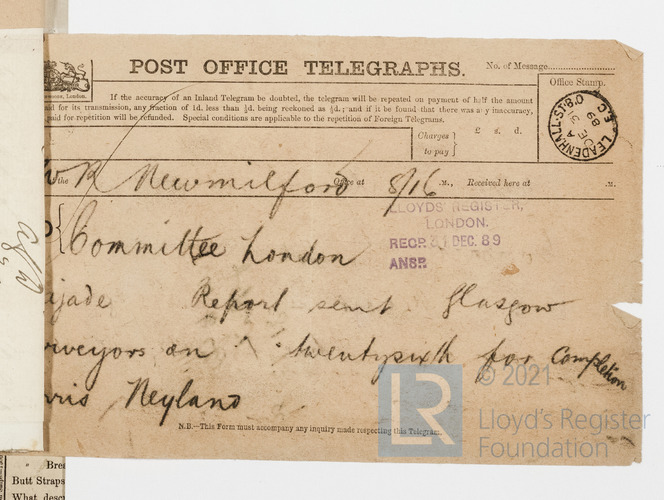 POST OFFICE TELEGRAPHS.
No. of Message
Office Stamp.
If the accuracy of an Inland Telegram be doubted, the telegram will be repeated on payment of half the amount
paid for its transmission, any fraction of 1d. less than ½d. being reckoned as ½d.; and if it be found that there was any inaccuracy,
paid for repetition will be refunded. Special conditions are applicable to the repetition of Foreign Telegrams.
Charges to pay } £ s. d.
LEADENHALL-ST. B.O. E.C.
DE 31 89
the Newmilford Office at 8/16 .M., Received here at .M.
LLOYDS REGISTER,
LONDON.
RECD. 31 DEC. 89
ANSD.
Committee London
jade Report sent Glasgow
rveyors on twentysixth for completion
rris Neyland
N.B.—This Form must accompany any inquiry made respecting this Telegram.
Brea
Butt Straps
What descr
LR
© 2021
Lloyd's Register
Foundation